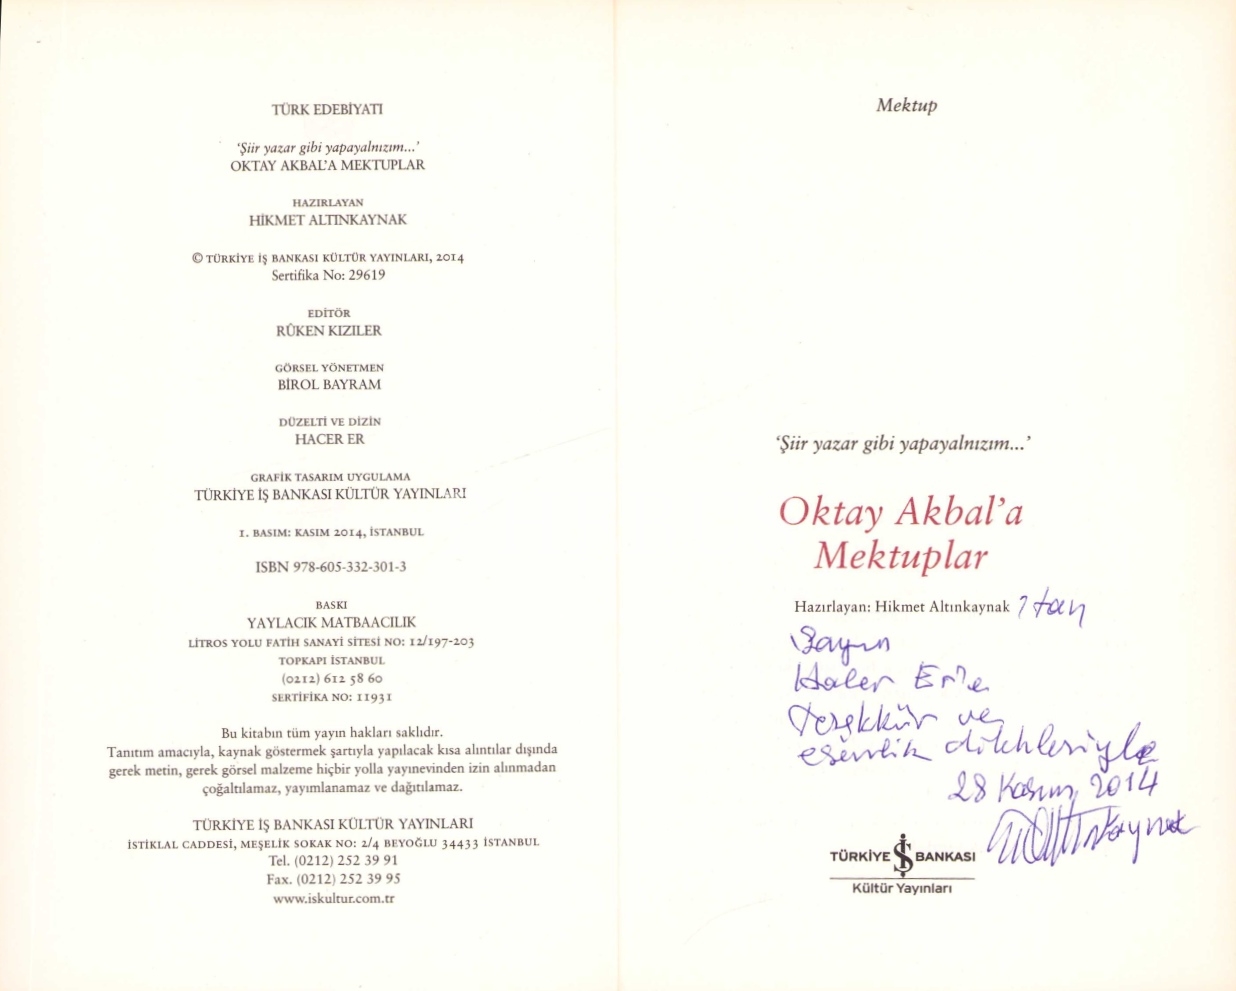 TÜRK EDEBİYATI
‘Şiir yazar gibi yapayalnızım...’
OKTAY AKBAL’A MEKTUPLAR
HAZIRLAYAN
HİKMET ALTINKAYNAK
© TÜRKİYE İŞ BANKASI KÜLTÜR YAYINLARI, 2014
Sertifika No: 29619
EDİTÖR
RÛKEN KIZILER
GÖRSEL YÖNETMEN
BİROL BAYRAM
DÜZELTİ VE DİZİN
HACER ER
GRAFİK TASARIM UYGULAMA
TÜRKİYE İŞ BANKASI KÜLTÜR YAYINLARI
1. BASIM: KASIM 2014, İSTANBUL
ISBN 978-605-332-301-3
BASKI
YAYLACIK MATBAACILIK
LİTROS YOLU FATİH SANAYİ SİTESİ NO: 12/197-203
TOPKAPI İSTANBUL
(0212) 612 58 60
SERTİFİKA NO: 11931
Bu kitabın tüm yayın hakları saklıdır.
Tanıtım amacıyla, kaynak göstermek şartıyla yapılacak kısa alıntılar dışında
gerek metin, gerek görsel malzeme hiçbir yolla yayınevinden izin alınmadan
çoğaltılamaz, yayımlanamaz ve dağıtılamaz.
TÜRKİYE İŞ BANKASI KÜLTÜR YAYINLARI
İSTİKLAL CADDESİ, MEŞELİK SOKAK NO: 2/4 BEYOĞLU 34433 İSTANBUL
Tel. (0212) 252 39 91
Fax. (0212) 252 39 95
www.iskultur.com.tr
Mektup
‘Şiir yazar gibi yapayalnızım...’
Oktay Akbal’a
Mektuplar
Hazırlayan: Hikmet Altınkaynak 'tan
Sayın
Hacer Er'e
Teşekkür ve
esenlik dilekleriyle
28 Kasım 2014
TÜRKİYE İŞ BANKASI
Kültür Yayınları